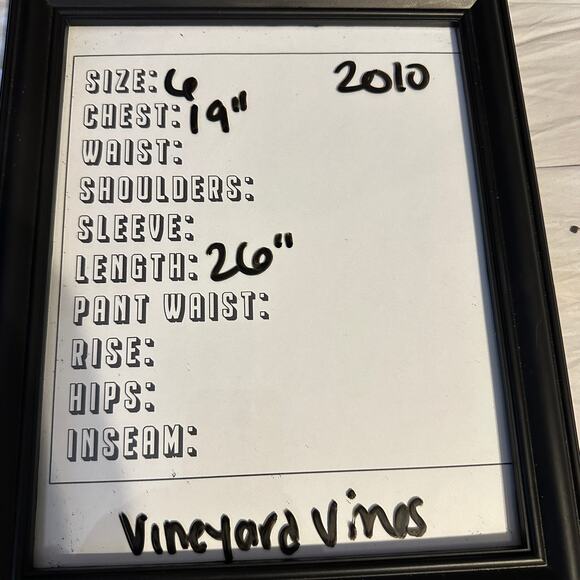 SIZE: 6 2010
CHEST: 19"
WAIST:
SHOULDERS:
SLEEVE:
LENGTH: 26"
PANT WAIST:
RISE:
HIPS:
INSEAM:
Vineyard Vines